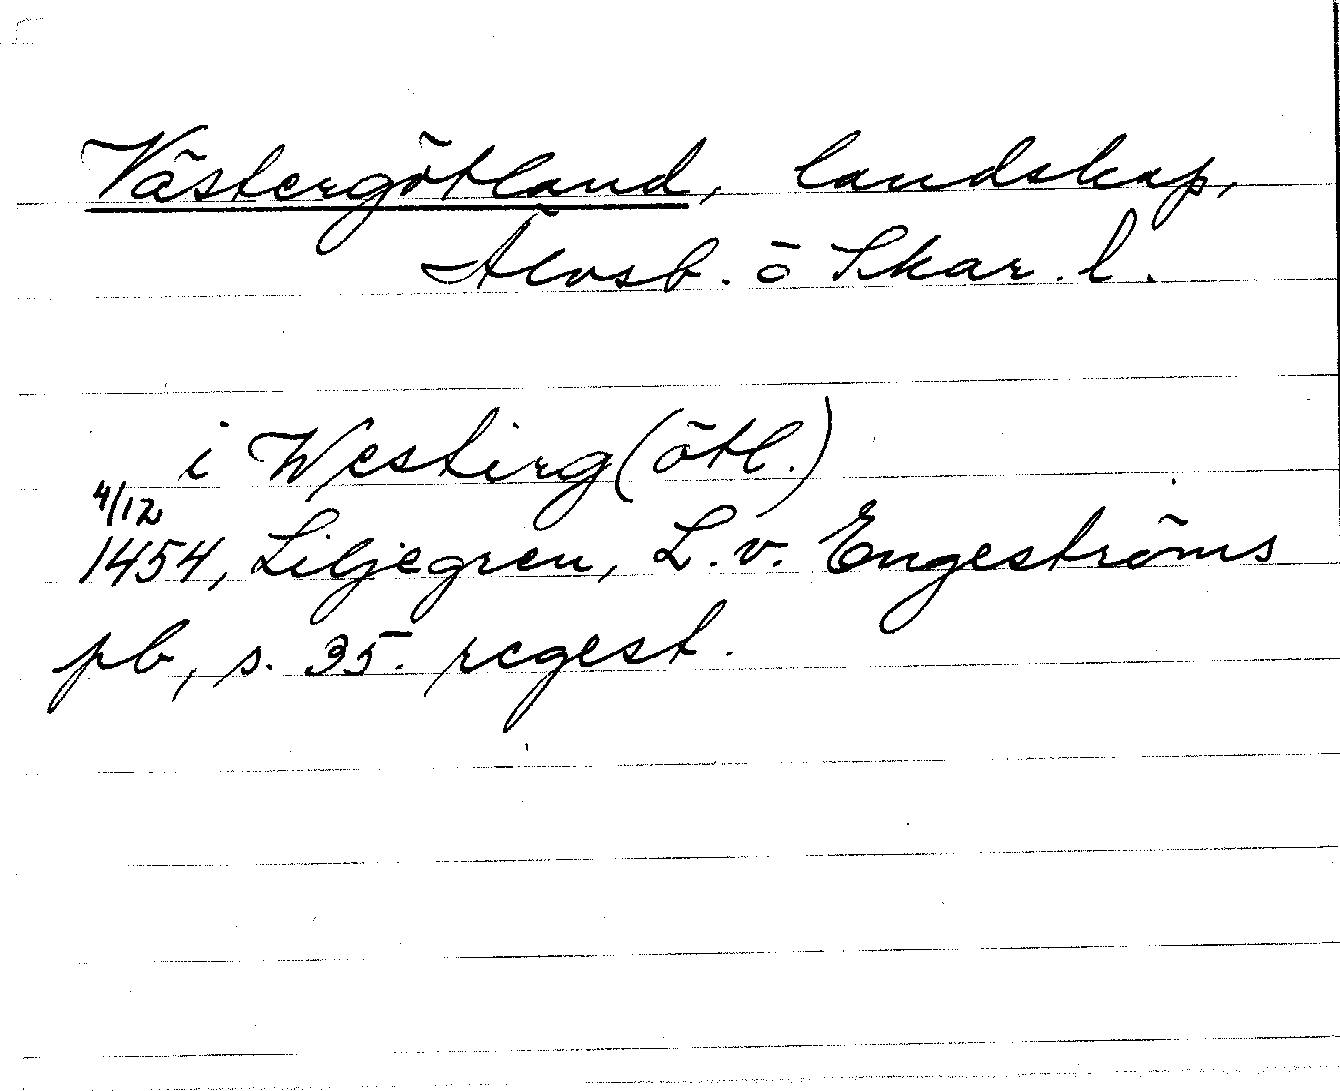 Västergötland, landskap,
Älvsb. o Skar. l.
i Westirg(ötl.)
4/12
1454, Liljegren, L. v. Engeströms
pb, s. 35. regest.